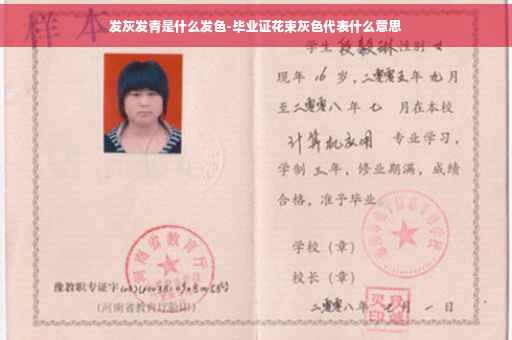 发灰发青是什么发色-毕业证花束灰色代表什么意思
样本
学生 段毅琳 性别 女
现年 16 岁，二零零五年 九 月
至二零零八年 七 月在本校
计算机应用 专业学习，
学制 三 年，修业期满，成绩
合格，准予毕业
学校（章）
校长（章）
二零零八年 七 月 一 日
河南省教育厅
豫教职专证字
（河南省教育厅验印）